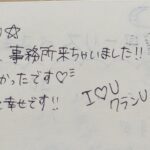 ☆
事務所来ちゃいました!!
かったです♡
幸せです!!
I♡U
ワランU